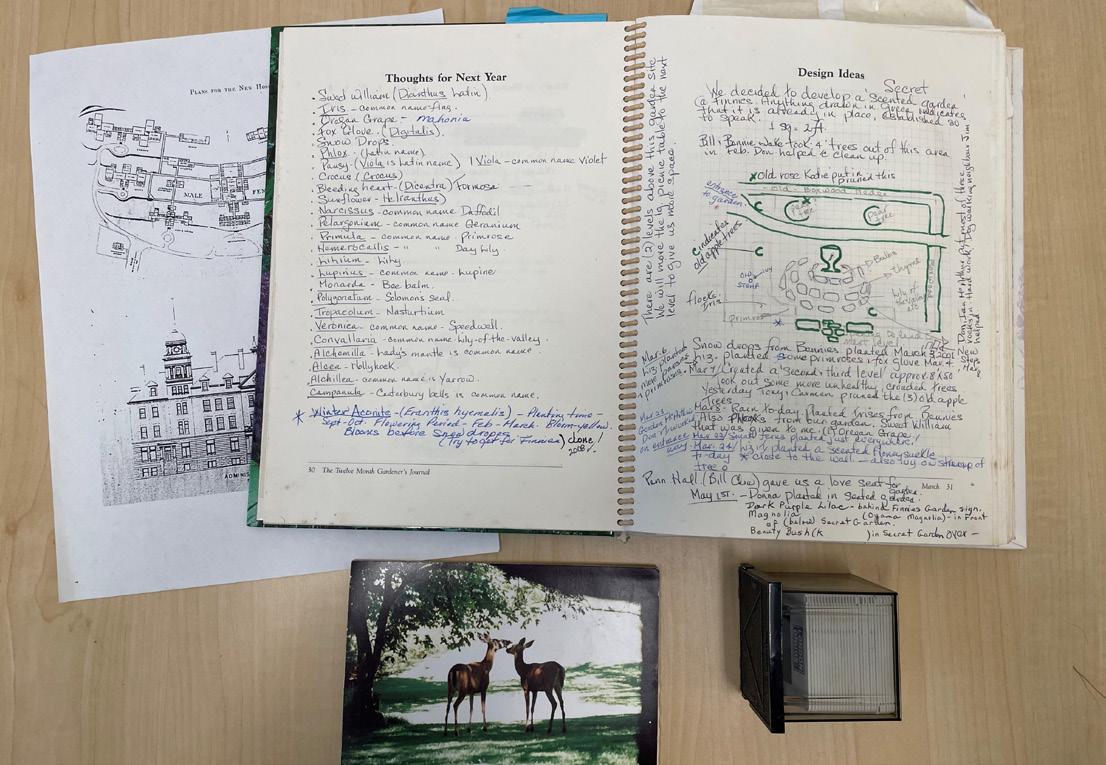 PLANS FOR THE NEW
MALE
ADMINIS
Thoughts for Next Year
• Sweet William (Dianthus Latin)
• Iris - common name - flag.
• Oregon Grape - mahonia
• Fox Glove. (Digitalis).
• Snow Drops
• Phlox - (Latin name)
• Pansy (Viola is Latin name) 1 Viola - common name Violet
• Crocus (Crocus)
• Bleeding heart - (Dicentra) Formosa
• Sunflower - Helianthus)
• Narcissus - common name Daffodil
• Pelargonium - common name Geranium
• Primula - common name - Primrose
• Hemerocallis - " " Day Lily
• Lilium - Lily
• Lupinus - common name - Lupine
• Monarda - Bee balm.
• Polygonatum - Solomons seal.
• Tropaeolum - Nasturtium
• Veronica - common name - Speedwell.
• Convallaria - common name - Lily-of-the-valley.
• Alchemilla - Lady's mantle is common name.
• Hollyhock.
• Achillea - common name is Yarrow.
• Campanula - Canterbury bells is common name.
* Winter Aconite - (Eranthis hyemalis) - Planting time -
Sept-Oct. Flowering Period - Feb - March. Bloom-yellow.
Blooms before Snow drops.
(Try to get for Finnies) done!
2008
30 The Twelve Month Gardener's Journal
There are (2) levels above this garden site
We will move the picnic table to the next
level to give us more space.
Design Ideas
Secret
We decided to develop a 'scented garden'
@ Finnies. Anything drawn in Green indicates
that it is already in place, established so
to speak.
1 sq = 2ft.
Bill & Bennie took 4 trees out of this area
in Feb. Don helped clean up.
x Old rose Katie put in this
- old - Boxwood Hedge
entrance
to garden
c indicates
old apple trees
Pear
tree
old ivy
stump
Bulbs
thyme
Lily of
valley
Iris
primrose
Snow drops from Bennies planted March 3, 2001
Liz. planted some primroses & fox Glove Mar. 4
Mar 7/ Created a second, third level approx. 8'x50
took out some more unhealthy, crowded trees
Yesterday Tony & Carmen pruned the (3) old apple
trees
Mar 8 - Rain today, planted irises from Bennies
Also Phlox's from our garden, Sweet William
that was given to me. (1) Oregon Grape!
Mar 23/ Small ferns planted just everywhere!
Mar. 24/ Liz planted a scented Honeysuckle
to-day * close to the wall - also ivy on stump of
tree o
Mar. 6
Liz planted
more
primroses
Penn Hall (Bill Clue) gave us a love seat for
garden.
March 31
May 1st. - Donna planted in Secret Garden
Dark Purple Lilac - behind Finnies Garden sign.
Magnolia (Oyama Magnolia) - in front
of (below) Secret Garden.
Beauty Bush (K ) in Secret Garden OVER -